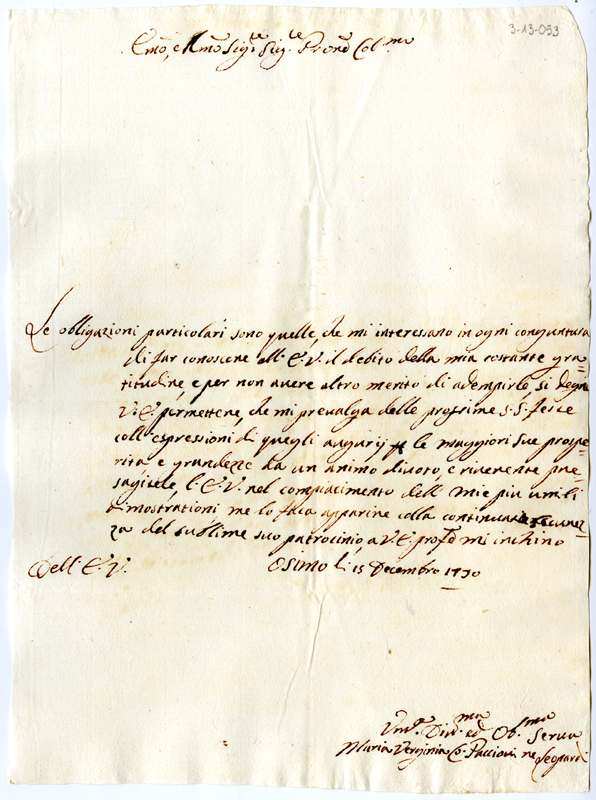 3-13-053
Emo, e Rmo Sigre Sigre Pron̄e Col.mo
Le obligazioni particolari sono quelle, che mi interessano in ogni congiuntura
di far conoscere all' E.V. il debito della mia costante gra=
titudine, e per non avere altro merito di adempirle, si degni
V.E. permettere, che mi prevalga delle prossime S.S. feste
coll' espressioni di quegli augurij le maggiori sue prospe
rità e grandezze da un animo divoto, e riverente pre=
sagitele, l' E.V. nel compiacimento dell' mie più umili
dimostrazioni me lo faca apparire colla continua
za del sublime suo patrocinio, a V.E. profd. mi inchino
Dell' E.V. Osimo li 15 Decembro 1730
Vm.e Div.ma ed Ob.ma Serua
Maria Verginia Co. ne Leopardi